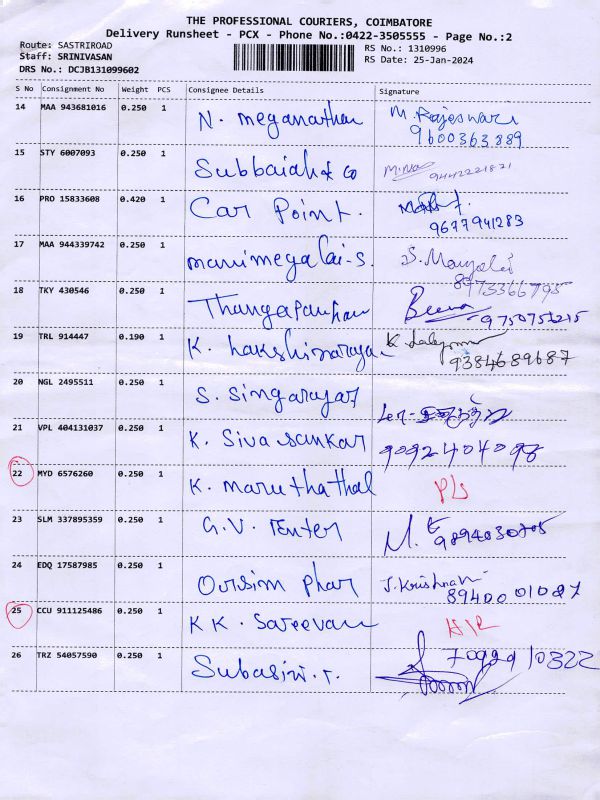 THE PROFESSIONAL COURIERS, COIMBATORE
Delivery Runsheet - PCX - Phone No.:0422-3505555 - Page No.:2
Route: SASTRIROAD RS No.: 1310996
Staff: SRINIVASAN RS Date: 25-Jan-2024
DRS No.: DCJB131099602
S No Consignment No Weight PCS Consignee Details Signature
14 MAA 943681016 0.250 1 N. Meganathan M. Rajeswari
9600363889
15 STY 6007093 0.250 1 Subbaiah & Co
9442221821
16 PRO 15833608 0.420 1 Car Point.
9677941283
17 MAA 944339742 0.250 1 manimegalai-S.
8973366795
18 TKY 430546 0.250 1 Thangapandian
9750751215
19 TRL 914447 0.190 1 K. Lakshinarayan K.
9384689687
20 NGL 2495511 0.250 1 S. Singarayar
21 VPL 404131037 0.250 1 K. Siva Sankar 9092404098
22 MYD 6576260 0.250 1 K. Maruthathal
23 SLM 337895359 0.250 1 G.V. Tenter M.
9894030705
24 EDQ 17587985 0.250 1 Ovisim Phar J. Krishnan
8940001087
25 CCU 911125486 0.250 1 K K. Sareevan
26 TRZ 54057590 0.250 1 Subasini. T.